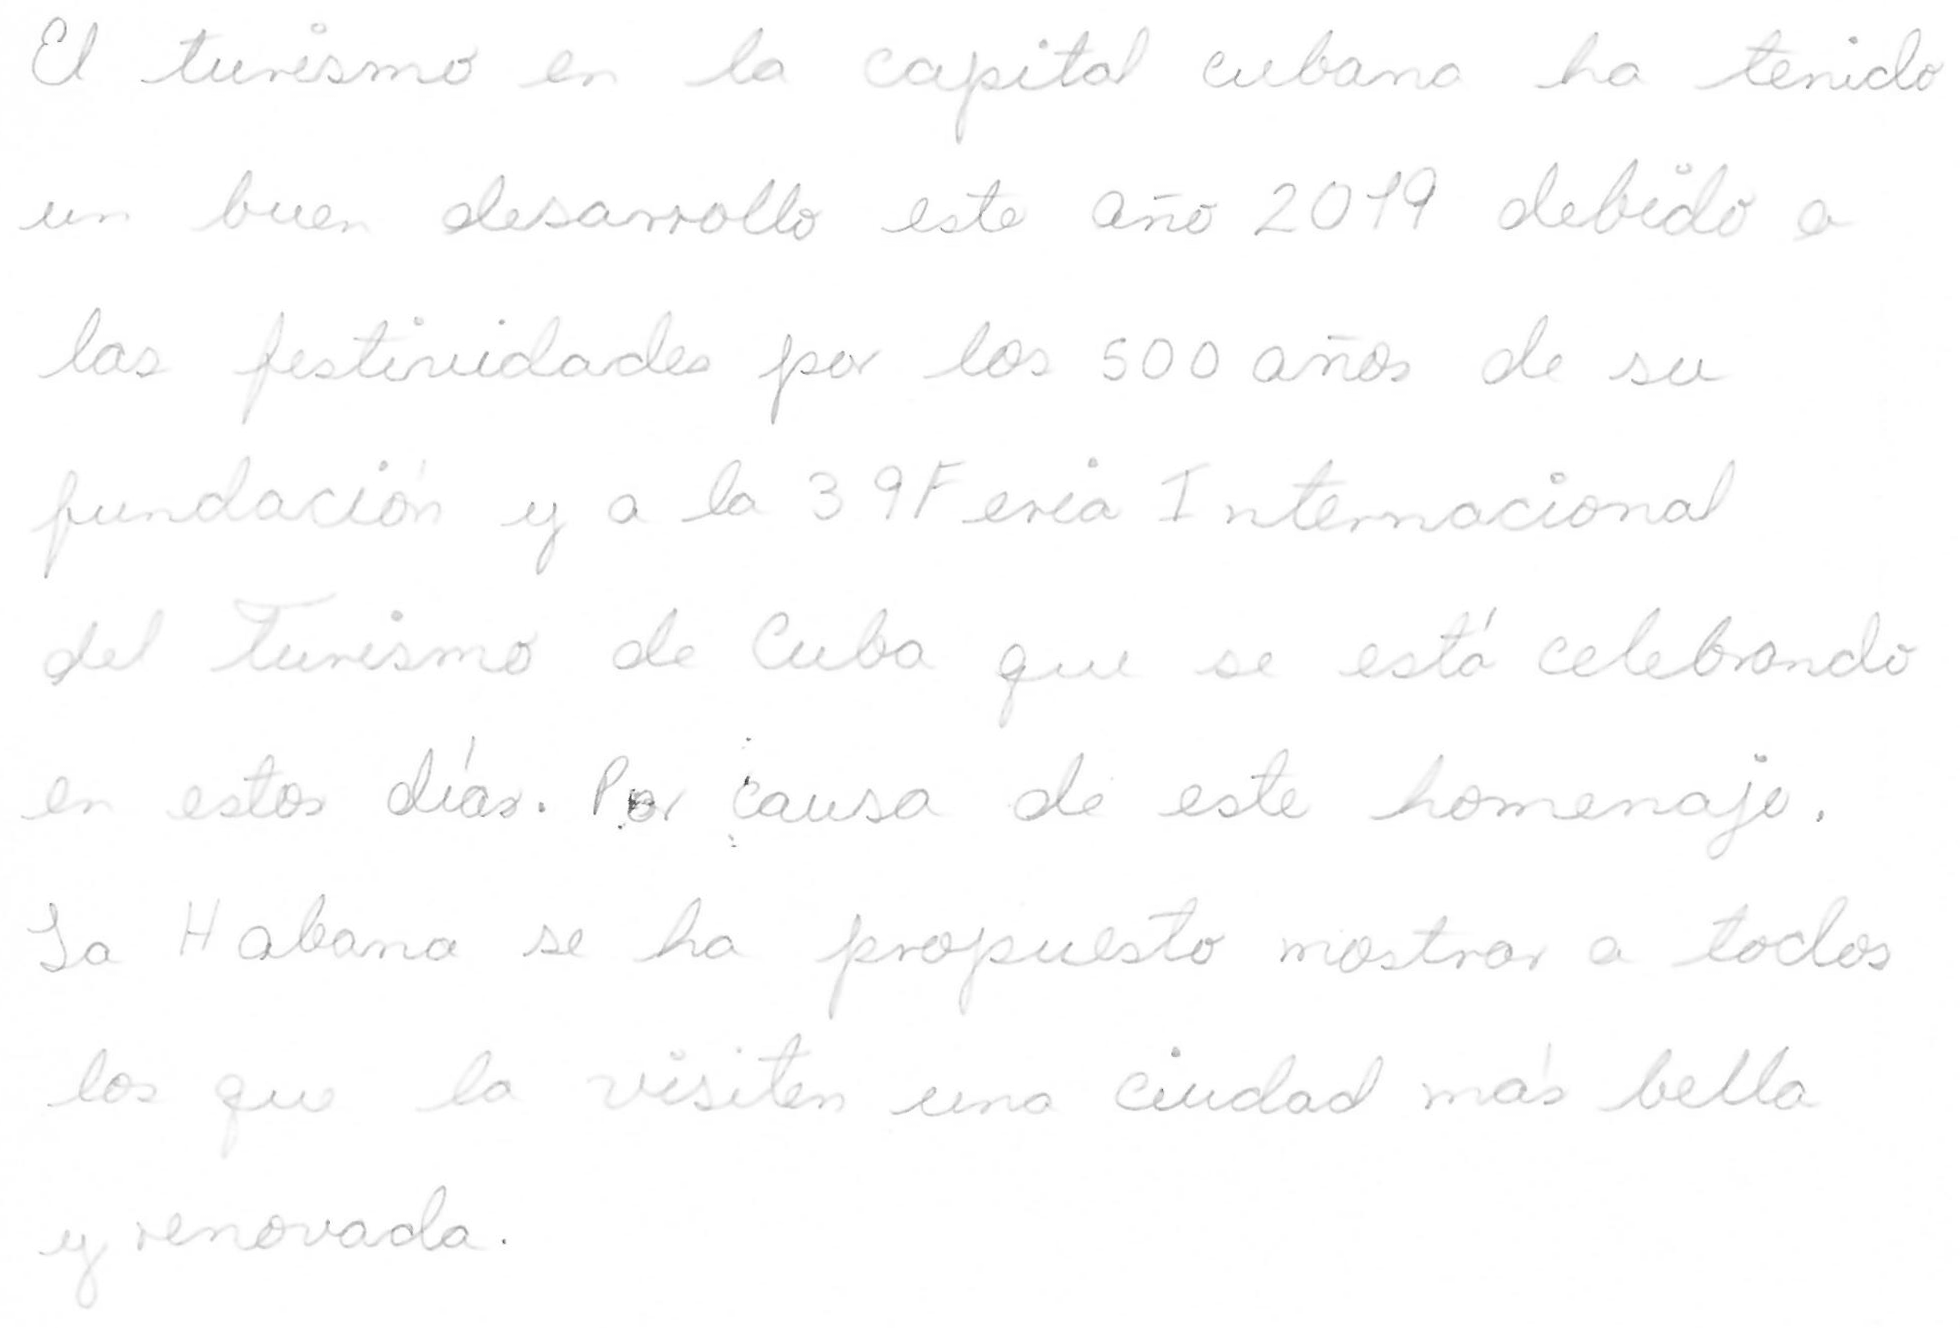 El turismo en la capital cubana ha tenido
un buen desarrollo este año 2019 debido a
las festividades por los 500 años de su
fundación y a la 39 Feria Internacional
del Turismo de Cuba que se está celebrando
en estos días. Por causa de este homenaje.
La Habana se ha propuesto mostrar a todos
los que la visiten una ciudad más bella
y renovada.